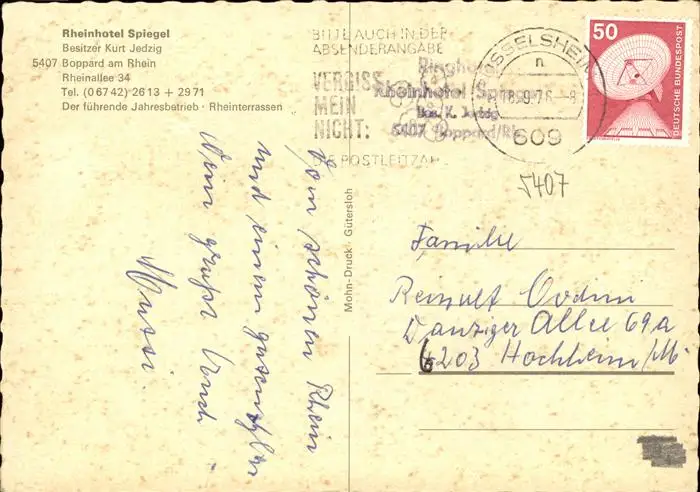 Rheinhotel Spiegel
Besitzer Kurt Jedzig
5407 Boppard am Rhein
Rheinallee 34
Tel. (0 67 42) 26 13 + 29 71
Der führende Jahresbetrieb · Rheinterrassen
BITTE AUCH IN DER
ABSENDERANGABE
VERGISS
MEIN
NICHT:
DIE POSTLEITZAHL
Rheinhotel Spiegel
Bes. K. Jedzig
5407 Boppard/Rh.
RÜSSELSHEIM
n
18.-9.76-8
609
50
DEUTSCHE BUNDESPOST
5407
Vom schönen Rhein
und einem guten
Wein grüßt Euch
Mohn-Druck · Gütersloh
Familie
Danziger Allee 69a
6203 Hochheim/M.